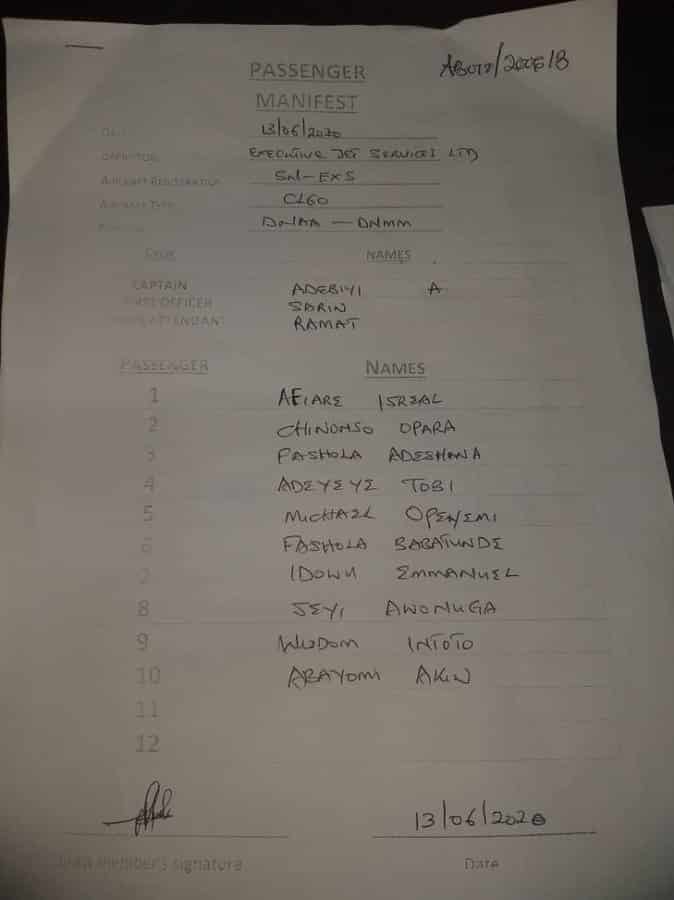 PASSENGER
MANIFEST
DATE 13/06/2020
OPERATOR EXECUTIVE JET SERVICES LTD
AIRCRAFT REGISTRATION 5N-EXS
AIRCRAFT TYPE CL60
DNAA — DNMM
CREW NAMES
CAPTAIN ADEBIYI A
FIRST OFFICER SARIN
ATTENDANT RAMAT
PASSENGER NAMES
1 AFIARE ISREAL
2 CHINONSO OPARA
3 FASHOLA ADESHINA
4 ADEYEYE TOBI
5 MICHAEL OPEYEMI
6 FASHOLA BABATUNDE
7 IDOWU EMMANUEL
8 SEYI AWONUGA
9 WISDOM INTOTO
10 ABAYOMI AKIN
11
12
13/06/2020
Crew member's signature Date